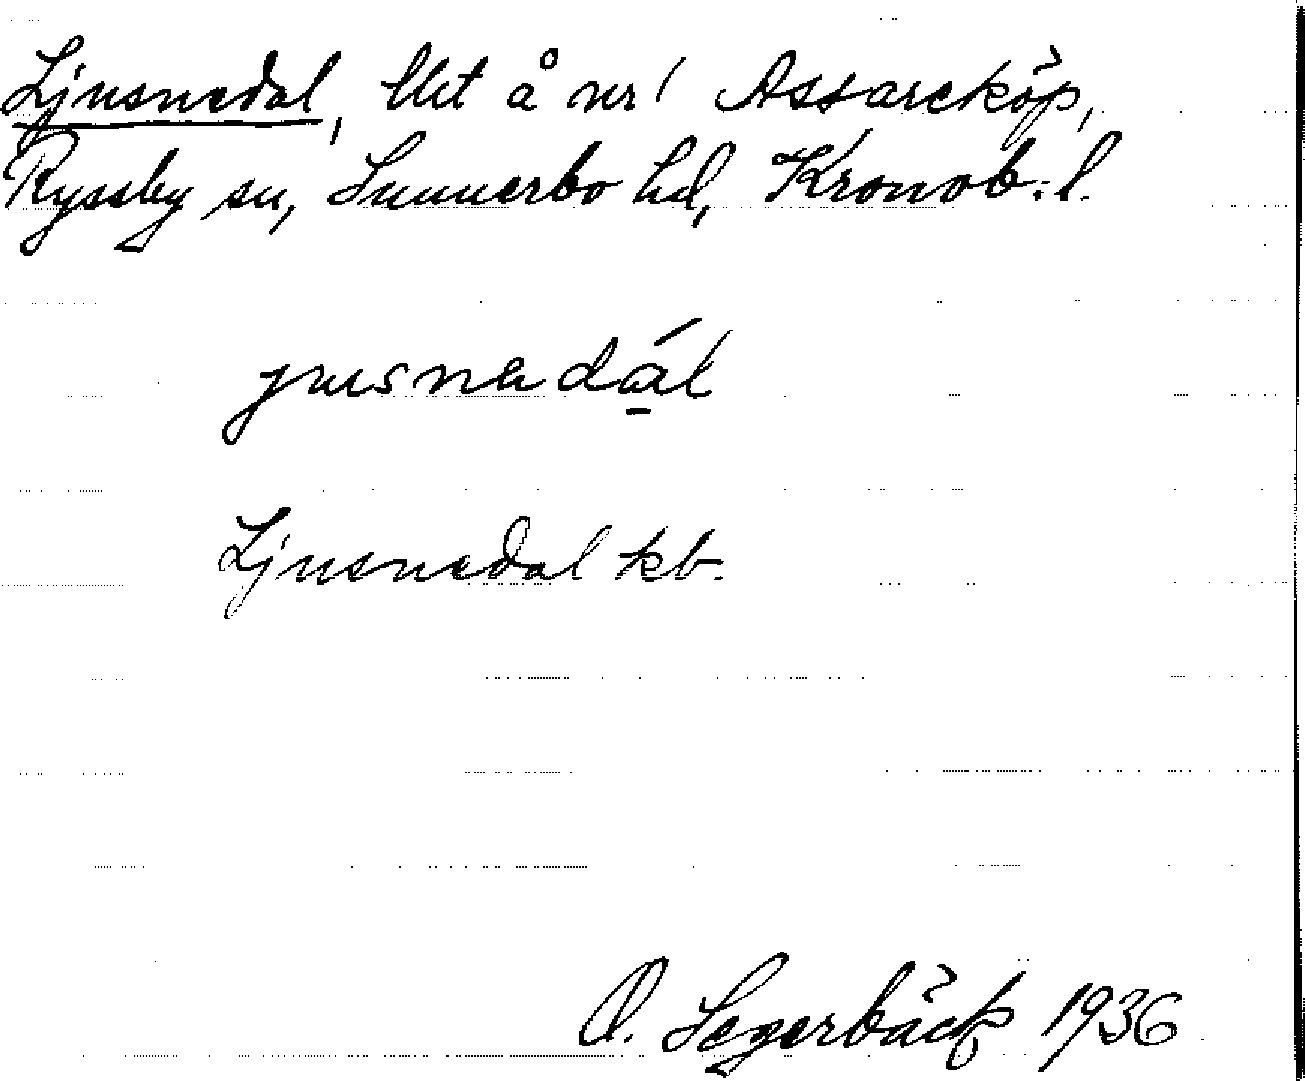 Ljusnedal, Utst å nr 1 Assareköp,
Ryssby sn, Sunnerbo hd, Kronob. l.
jusnadál
Ljusnedal kb.
O. Segerbäck 1936